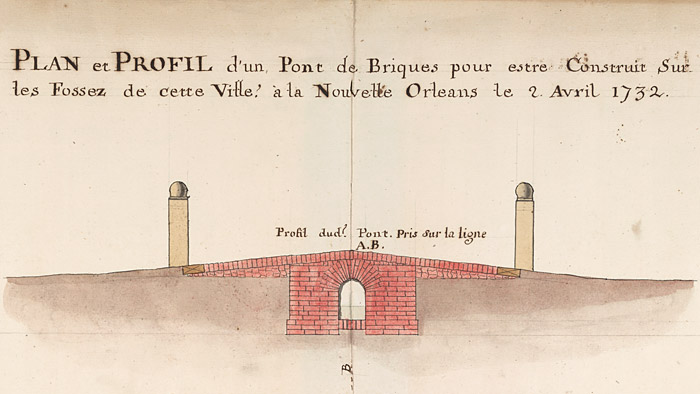 PLAN et PROFIL d'un Pont de Briques pour estre Construit Sur
les Fossez de cette Ville. à la Nouvelle Orleans le 2. Avril 1732.
Profil dud.t Pont. Pris sur la ligne
A.B.
B